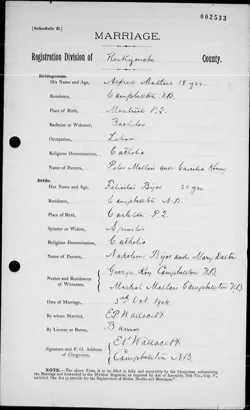 002533
(Schedule B.)
MARRIAGE.
Registration Division of Restigouche County.
Bridegroom.
His Name and Age, Alfred Mallais 18 yrs.
Residence, Campbellton N.B.
Place of Birth, Montreal P.Q.
Bachelor or Widower, Bachelor
Occupation, Labor
Religious Denomination, Catholic
Name of Parents, Peter Mallais and
Bride.
Her Name and Age, Bijos 20 yrs.
Residence, Campbellton N.B.
Place of Birth, Carleton P.Q.
Spinster or Widow, Spinster
Religious Denomination, Catholic
Name of Parents, Napoleon Bijos and Mary Dalton
Names and Residences of Witnesses, George Roy Campbellton N.B.
Martial Mallais Campbellton N.B.
Date of Marriage, 3rd Oct 1904.
By whom Married, E.P. Wallace
By License or Banns, Banns
Signature and P. O. Address of Clergyman, E.P. Wallace
Campbellton N.B.
NOTE.—The above Form is to be filled in fully and accurately by the Clergyman solemnizing
the Marriage and forwarded to the Division Registrar, as required by Act of Assembly, 50th Vic., Cap. V.,
intituled "An Act to provide for the Registration of Births, Deaths and Marriages."